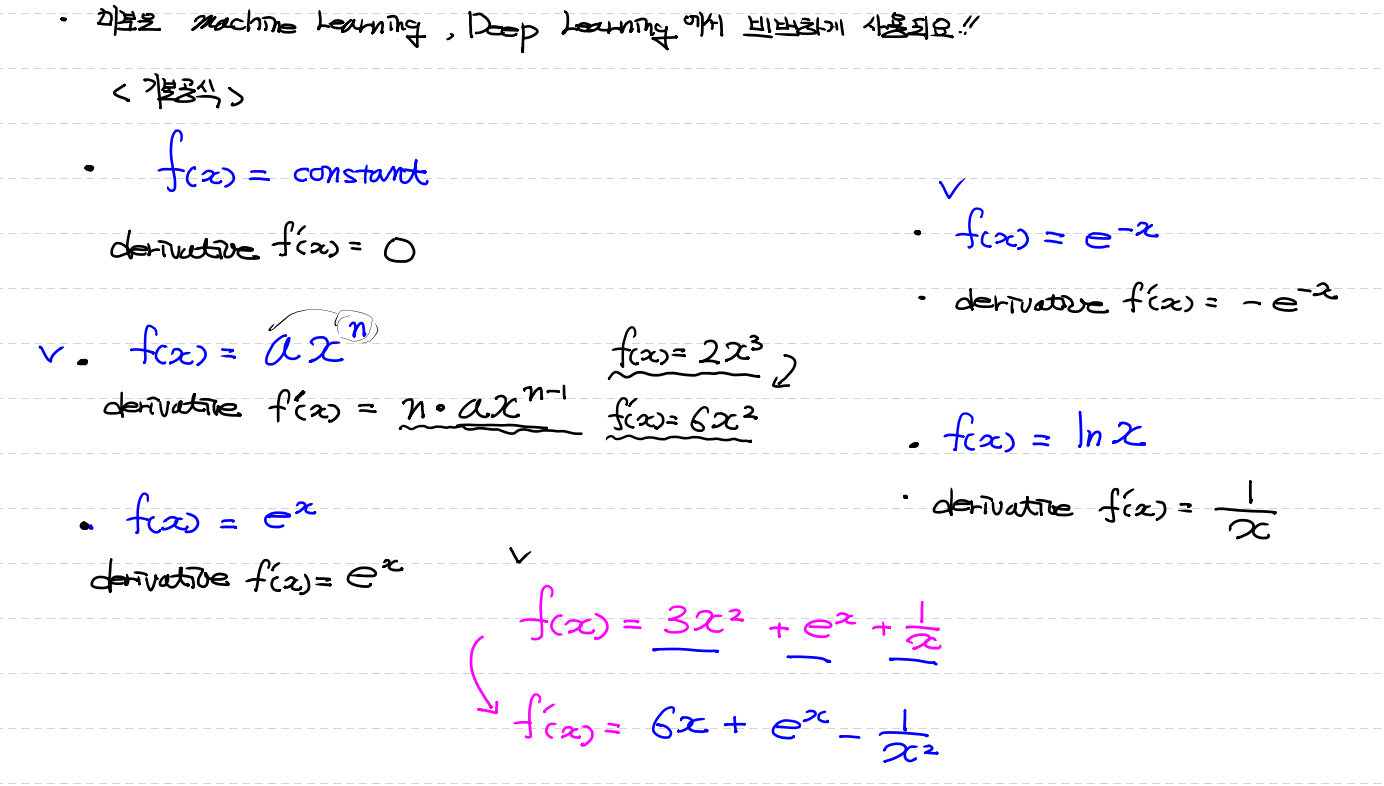 · 미분은 machine Learning, Deep Learning에서 빈번하게 사용되요!!
<기본공식>
· f(x) = constant
derivative f'(x) = 0
∨ · f(x) = axⁿ
derivative f'(x) = n · axⁿ⁻¹
f(x) = 2x³
f'(x) = 6x²
· f(x) = eˣ
derivative f'(x) = eˣ
∨
· f(x) = e⁻ˣ
· derivative f'(x) = - e⁻ˣ
· f(x) = ln x
· derivative f'(x) = 1/x
∨
f(x) = 3x² + eˣ + 1/x
f'(x) = 6x + eˣ - 1/x²